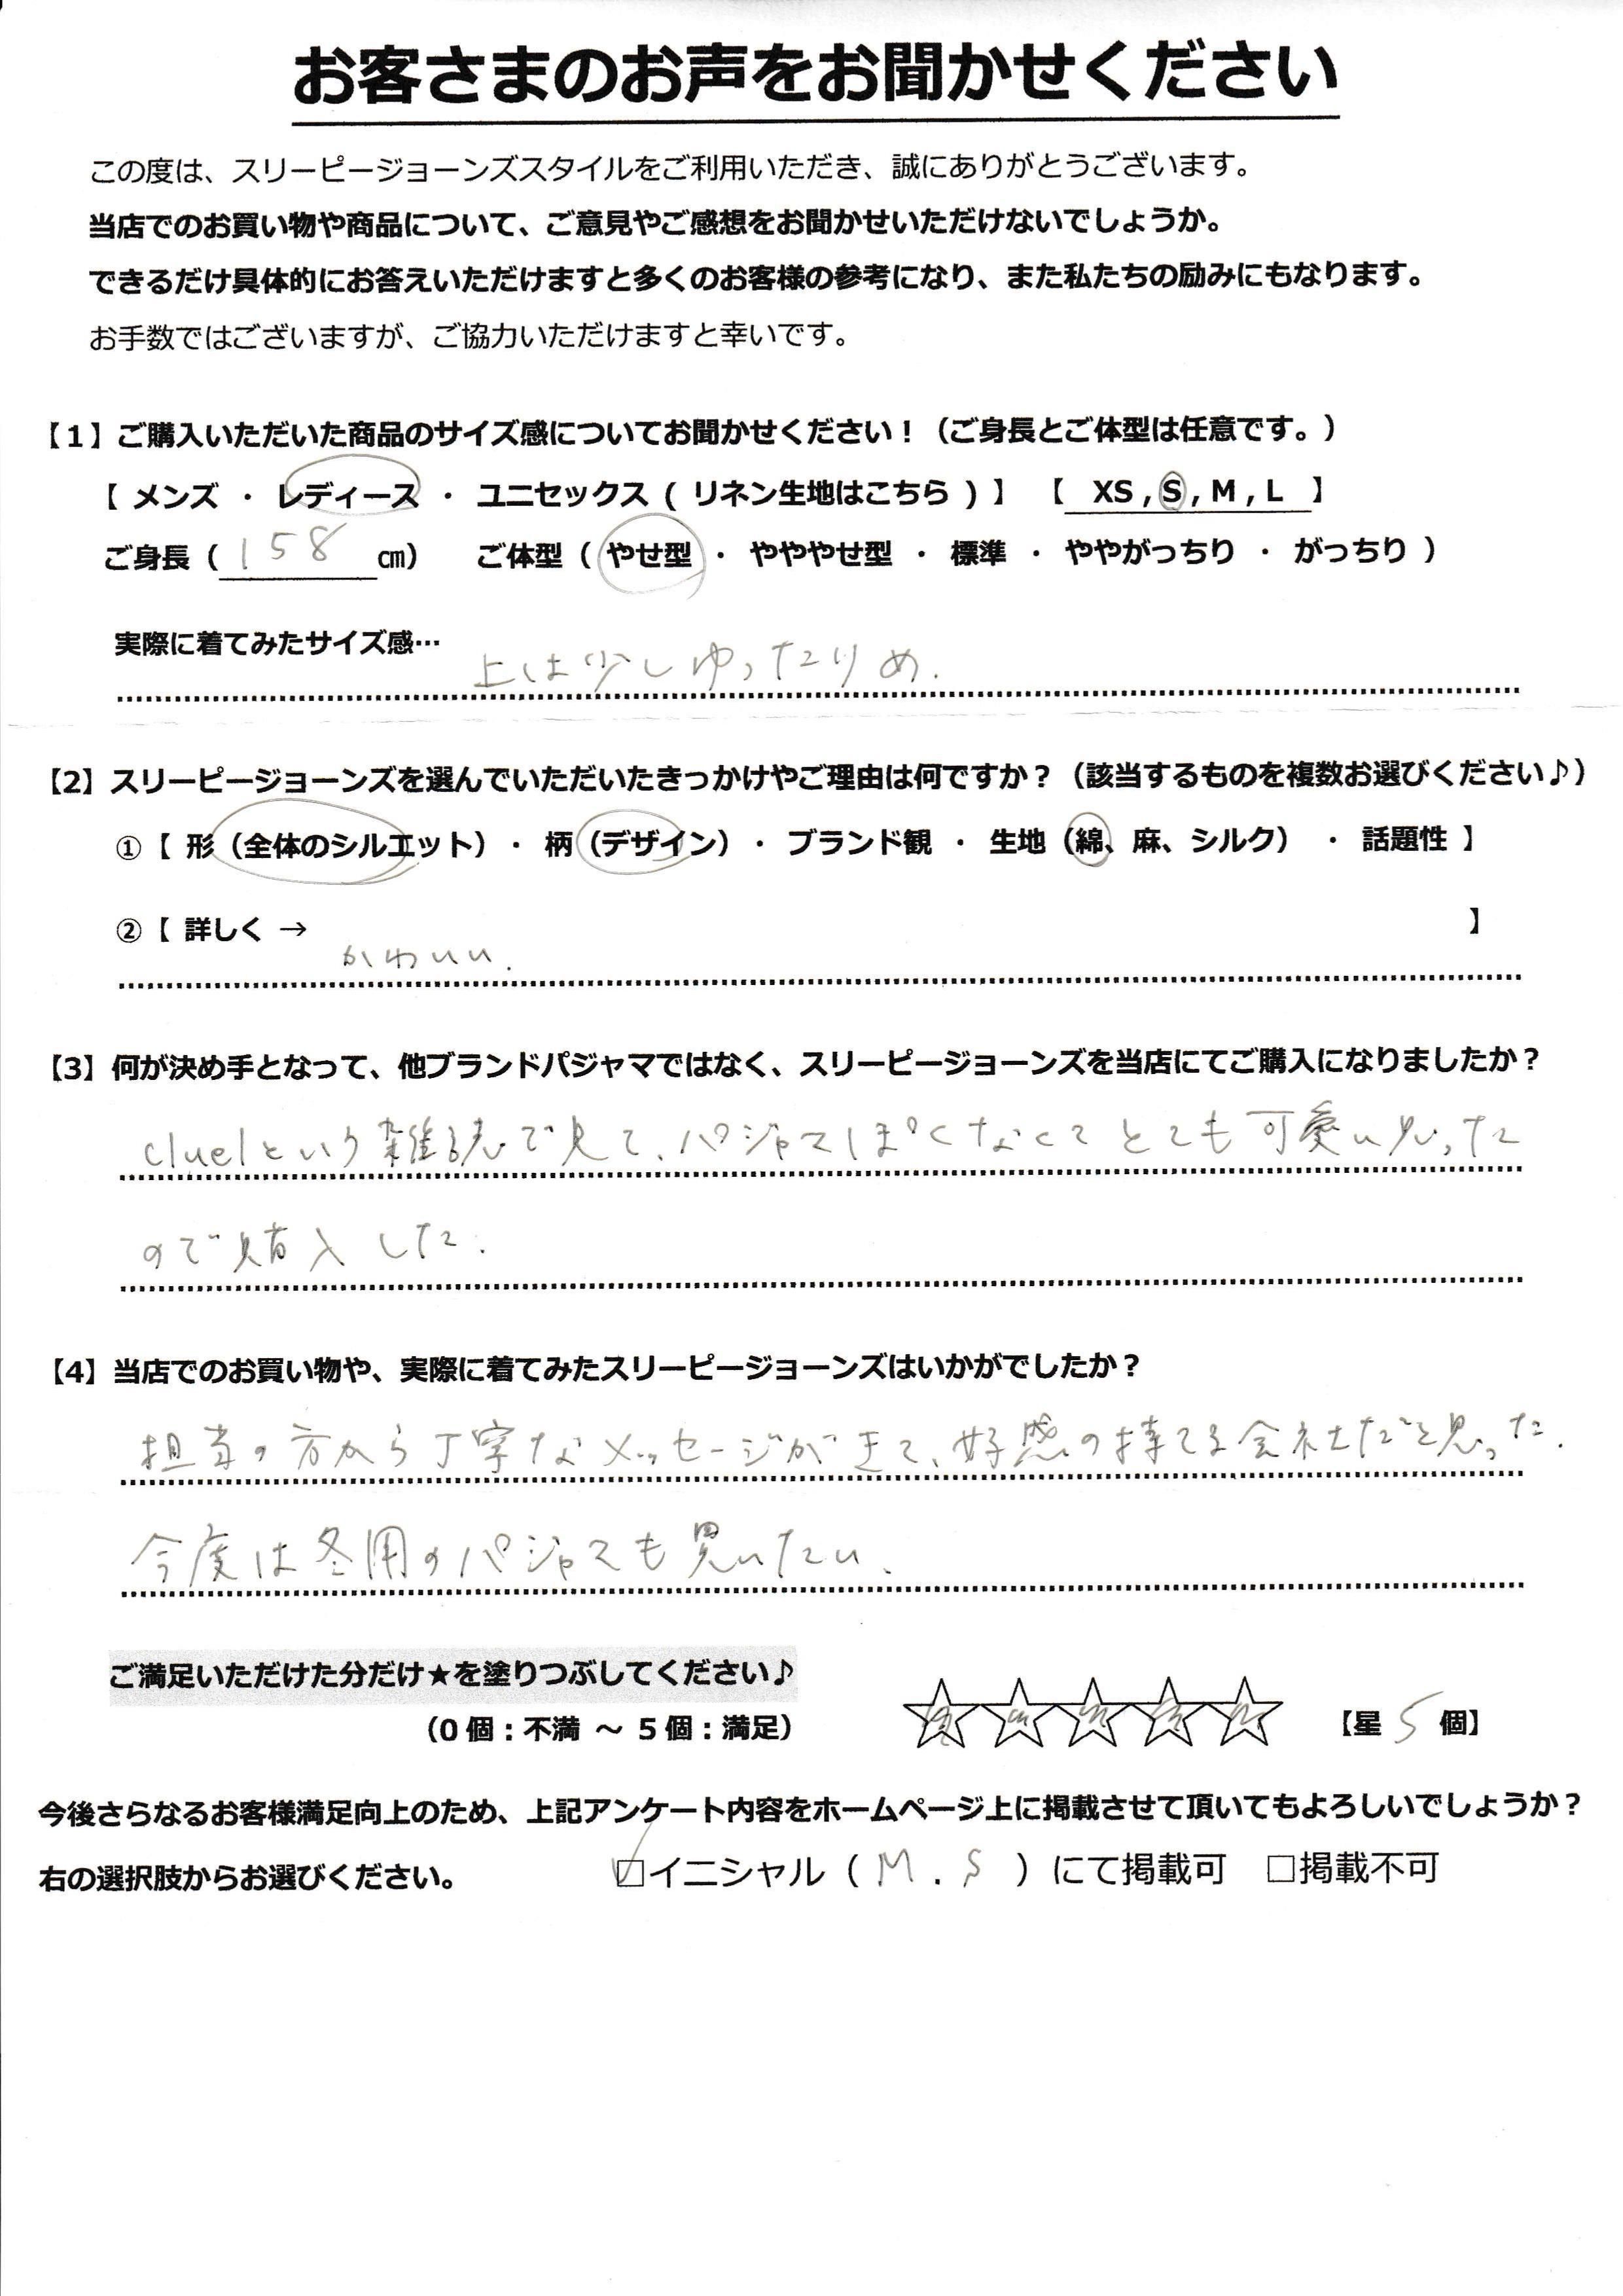 お客さまのお声をお聞かせください
この度は、スリーピージョーンズスタイルをご利用いただき、誠にありがとうございます。
当店でのお買い物や商品について、ご意見やご感想をお聞かせいただけないでしょうか。
できるだけ具体的にお答えいただけますと多くのお客様の参考になり、また私たちの励みにもなります。
お手数ではございますが、ご協力いただけますと幸いです。
【1】ご購入いただいた商品のサイズ感についてお聞かせください！（ご身長とご体型は任意です。）
【 メンズ ・ レディース ・ ユニセックス ( リネン生地はこちら ) 】 【 XS , S , M , L 】
ご身長（ 158 ㎝） ご体型（ やせ型 ・ やややせ型 ・ 標準 ・ ややがっちり ・ がっちり ）
実際に着てみたサイズ感… 上は少しゆったりめ.
【2】スリーピージョーンズを選んでいただいたきっかけやご理由は何ですか？（該当するものを複数お選びください♪）
①【 形（全体のシルエット）・ 柄（デザイン）・ ブランド観 ・ 生地（綿、麻、シルク） ・ 話題性 】
②【 詳しく → 】
かわいい.
【3】何が決め手となって、他ブランドパジャマではなく、スリーピージョーンズを当店にてご購入になりましたか？
cluelという雑誌で見て、パジャマしぽくなくてとても可愛い思った
ので購入した.
【4】当店でのお買い物や、実際に着てみたスリーピージョーンズはいかがでしたか？
担当の方から丁寧なメッセージがきて、好感の持てる会社だと思った.
今度は冬用のパジャマも買いたい.
ご満足いただけた分だけ★を塗りつぶしてください♪
（0 個：不満 ～ 5 個：満足） ☆☆☆☆☆ 【星 5 個】
今後さらなるお客様満足向上のため、上記アンケート内容をホームページ上に掲載させて頂いてもよろしいでしょうか？
右の選択肢からお選びください。 ☑イニシャル（ M . S ）にて掲載可 □掲載不可